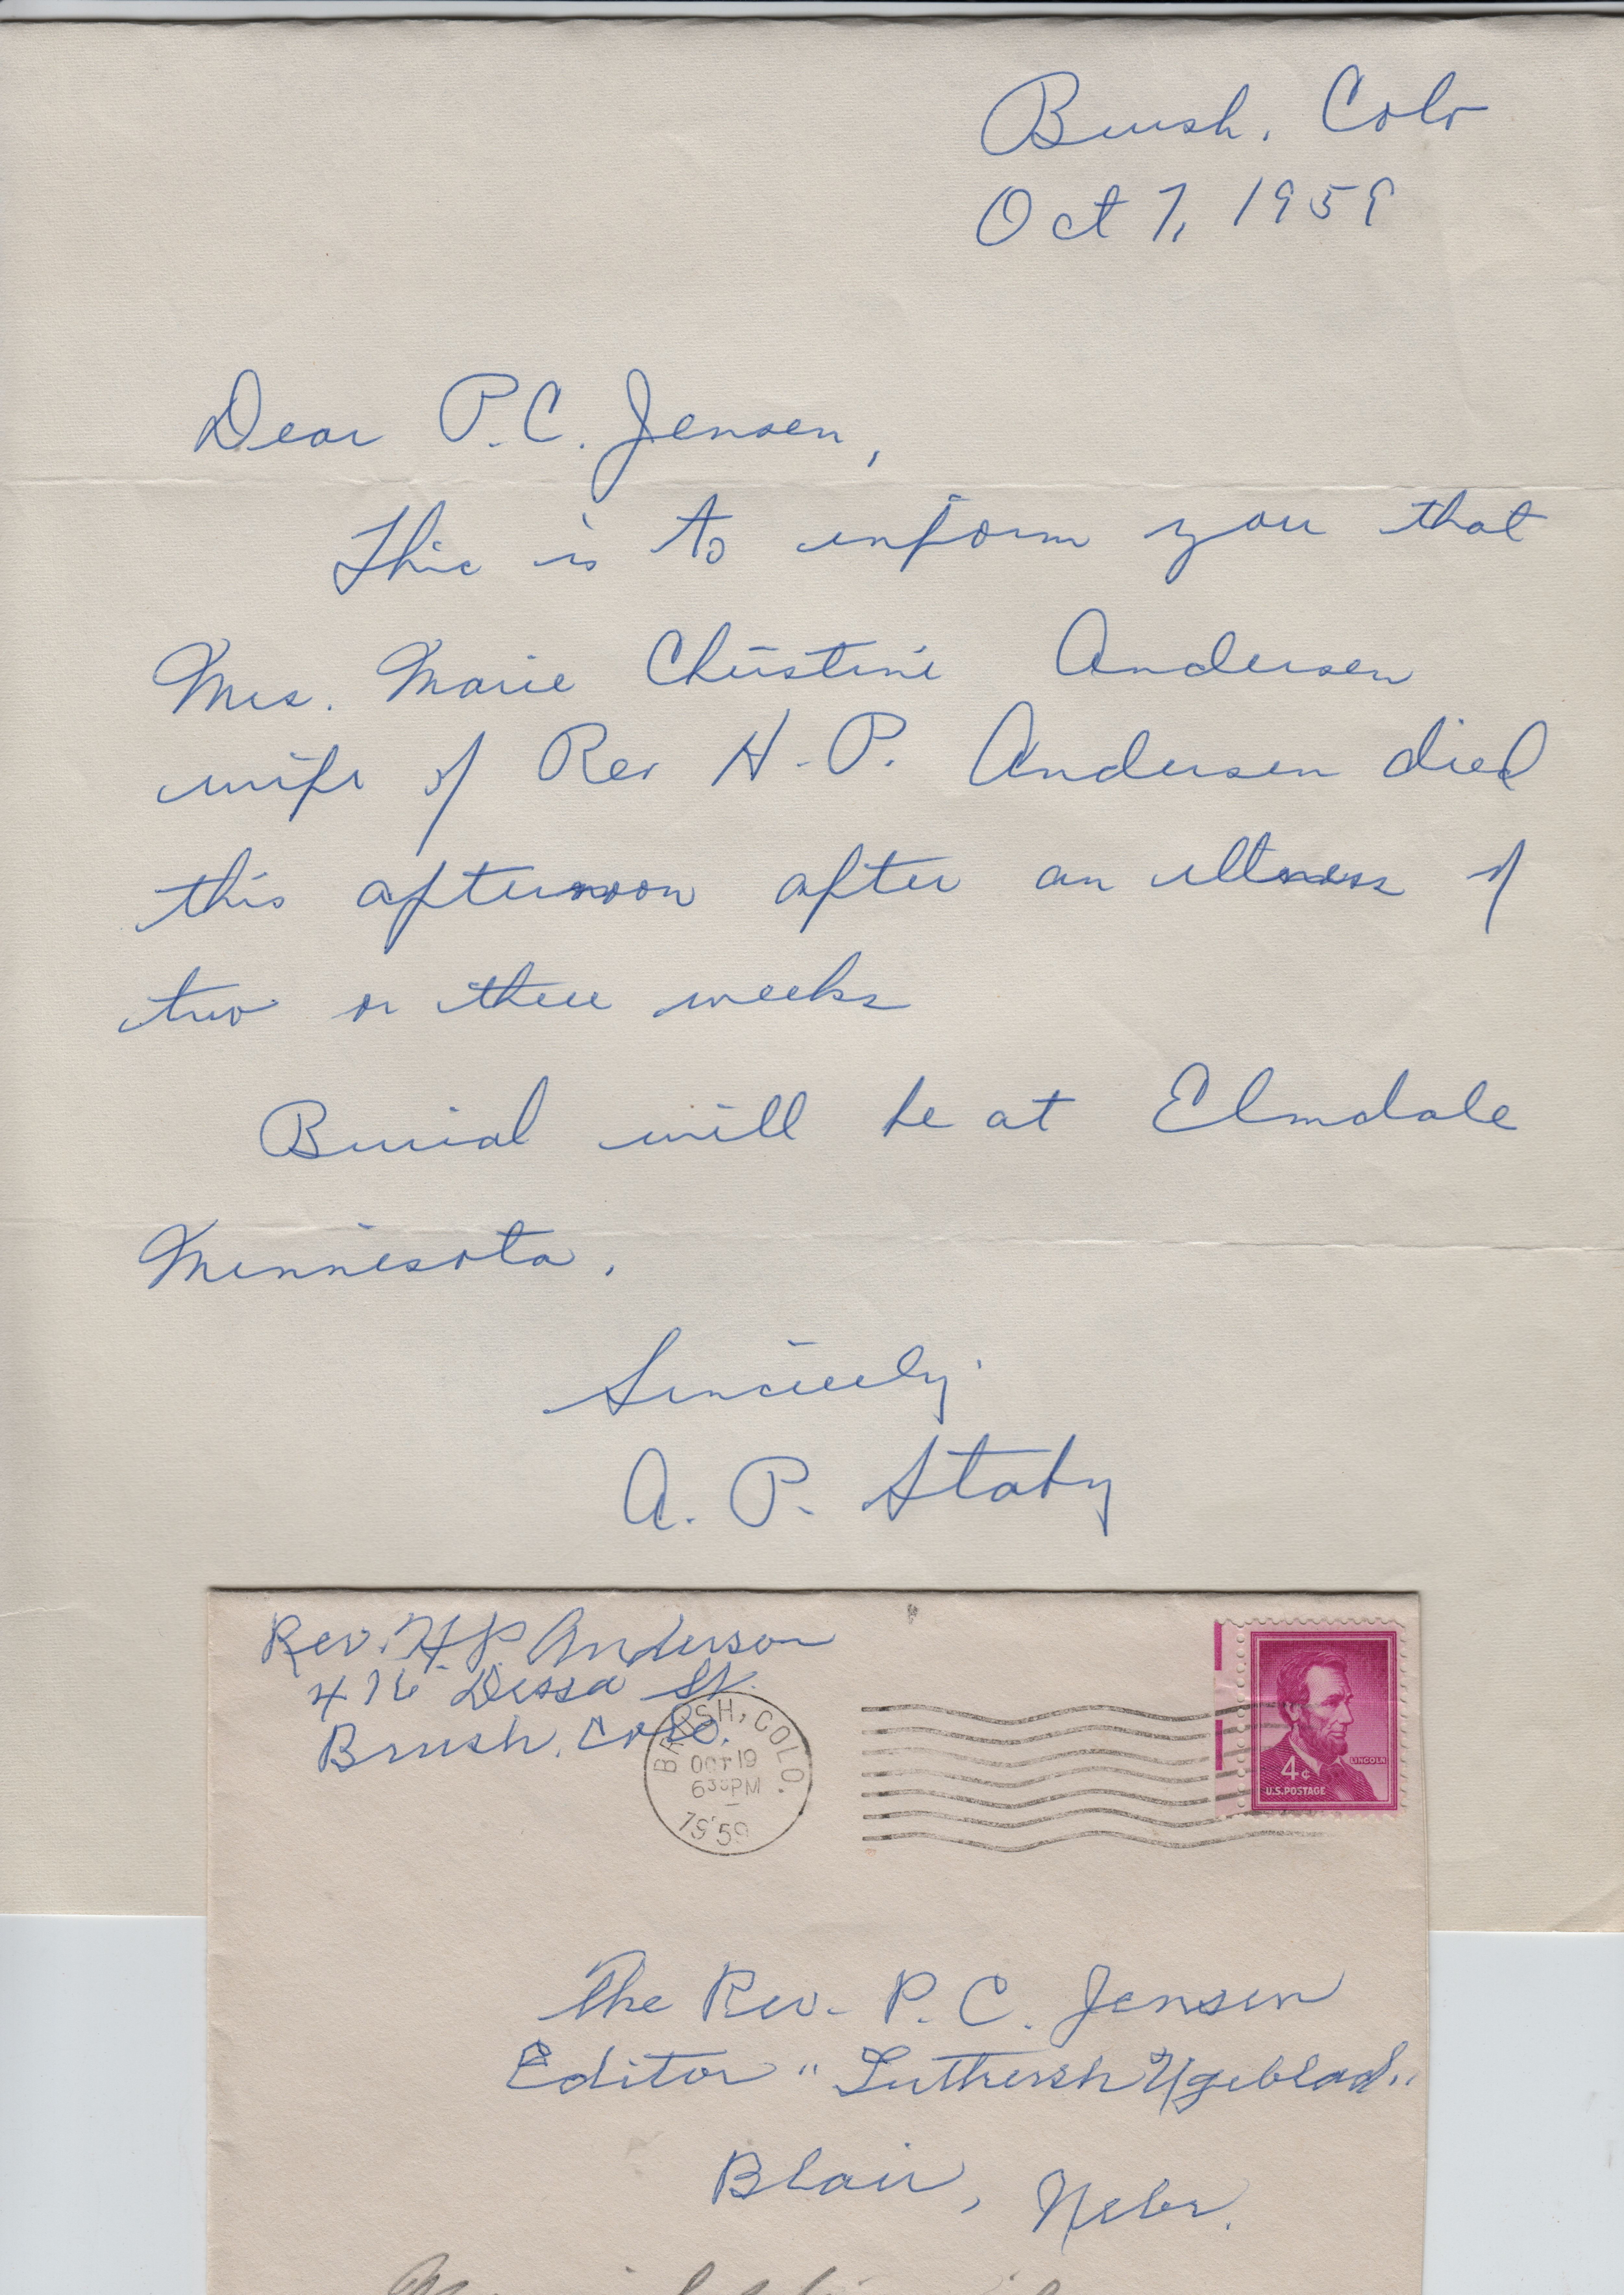 Brush, Colo
Oct 7, 1959
Dear P.C. Jensen,
This is to inform you that
Mrs. Marie Christine Andersen
wife of Rev H.P. Andersen died
this afternoon after an illness of
two or three weeks
Burial will be at Elmdale
Minnesota.
Sincerely
A. P. Staby
Rev. H.P. Anderson
416 Dessa St.
Brush, Colo.
BRUSH, COLO.
OCT 19
6 30 PM
1959
LINCOLN
4¢
U.S. POSTAGE
The Rev. P. C. Jensen
Editor "Luthersk Ugeblad"
Blair, Nebr.